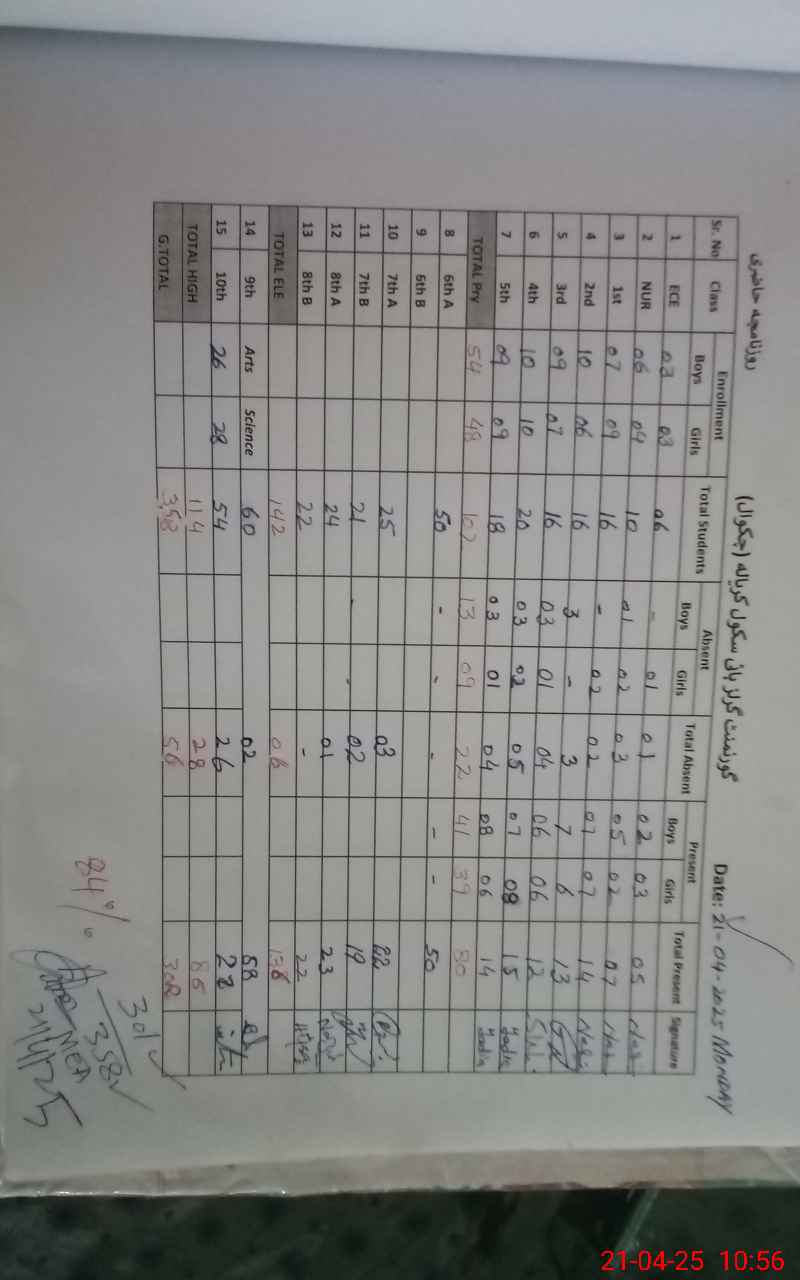 روزنامچہ حاضری گورنمنٹ گرلز ہائی سکول کریالہ (چکوال) Date: 21-04-2025 MONDAY
Sr. No Class Enrollment Total Students Absent Total Absent Present Total Present Signature
Boys Girls Boys Girls Boys Girls
1 ECE 03 03 06 - 01 01 02 03 05
2 NUR 06 04 10 01 02 03 05 02 07
3 1st 07 09 16 - 02 02 07 07 14
4 2nd 10 06 16 3 - 3 7 6 13
5 3rd 09 07 16 03 01 04 06 06 12
6 4th 10 10 20 03 02 05 07 08 15 Sadia
7 5th 09 09 18 03 01 04 08 06 14 Sadia
TOTAL Pry 54 48 102 13 09 22 41 39 80
8 6th A 50 - - - - - 50
9 6th B
10 7th A 25 03 22
11 7th B 21 - - 02 19
12 8th A 24 01 23
13 8th B 22 - 22
TOTAL ELE 142 06 136
14 9th Arts Science 60 02 58
15 10th 26 28 54 26 28
TOTAL HIGH 114 28 86
G.TOTAL 358 56 302
301
358
84%
MEA
21/4/25
21-04-25 10:56